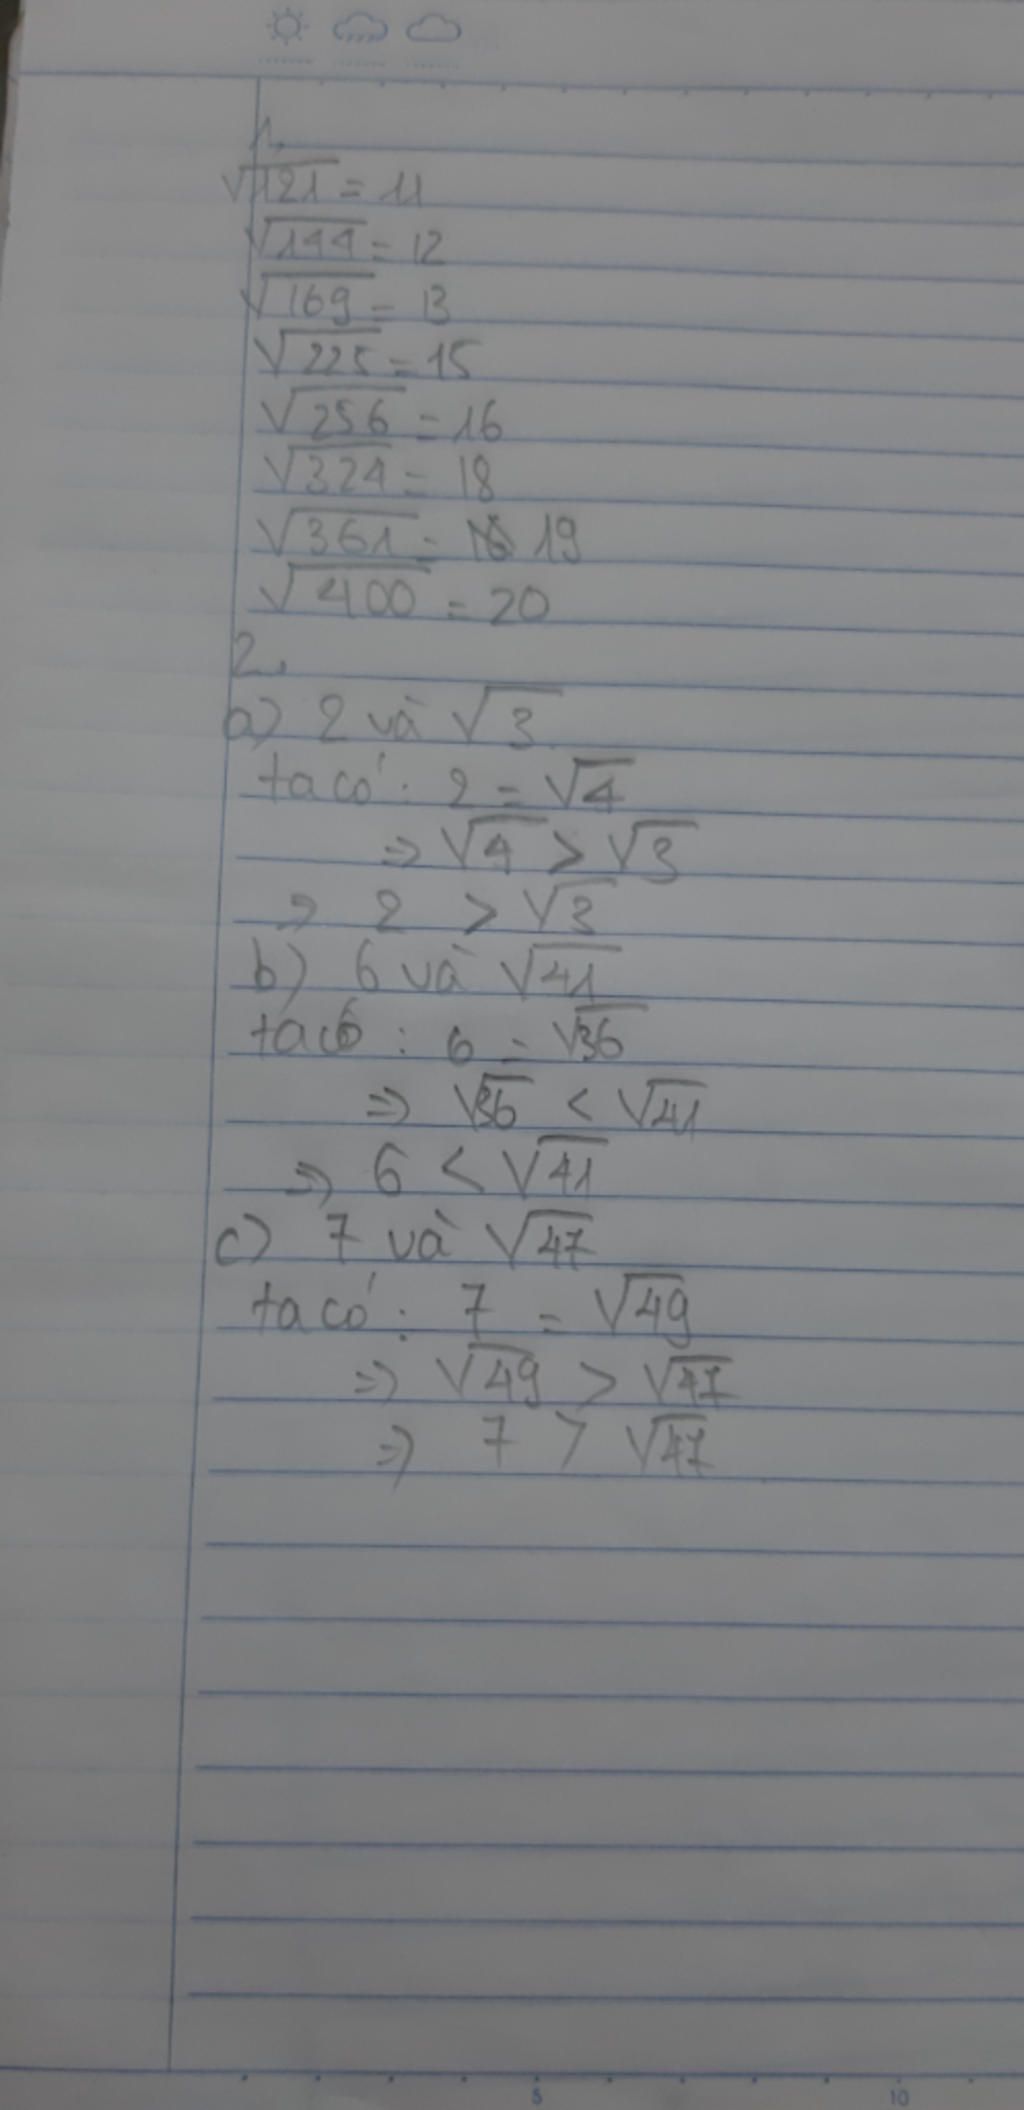 1.
√121 = 11
√144 = 12
√169 = 13
√225 = 15
√256 = 16
√324 = 18
√361 = 19
√400 = 20
2.
a) 2 và √3
ta có: 2 = √4
⇒ √4 > √3
⇒ 2 > √3
b) 6 và √41
ta có : 6 = √36
⇒ √36 < √41
⇒ 6 < √41
c) 7 và √47
ta có: 7 = √49
⇒ √49 > √47
⇒ 7 > √47
5 10